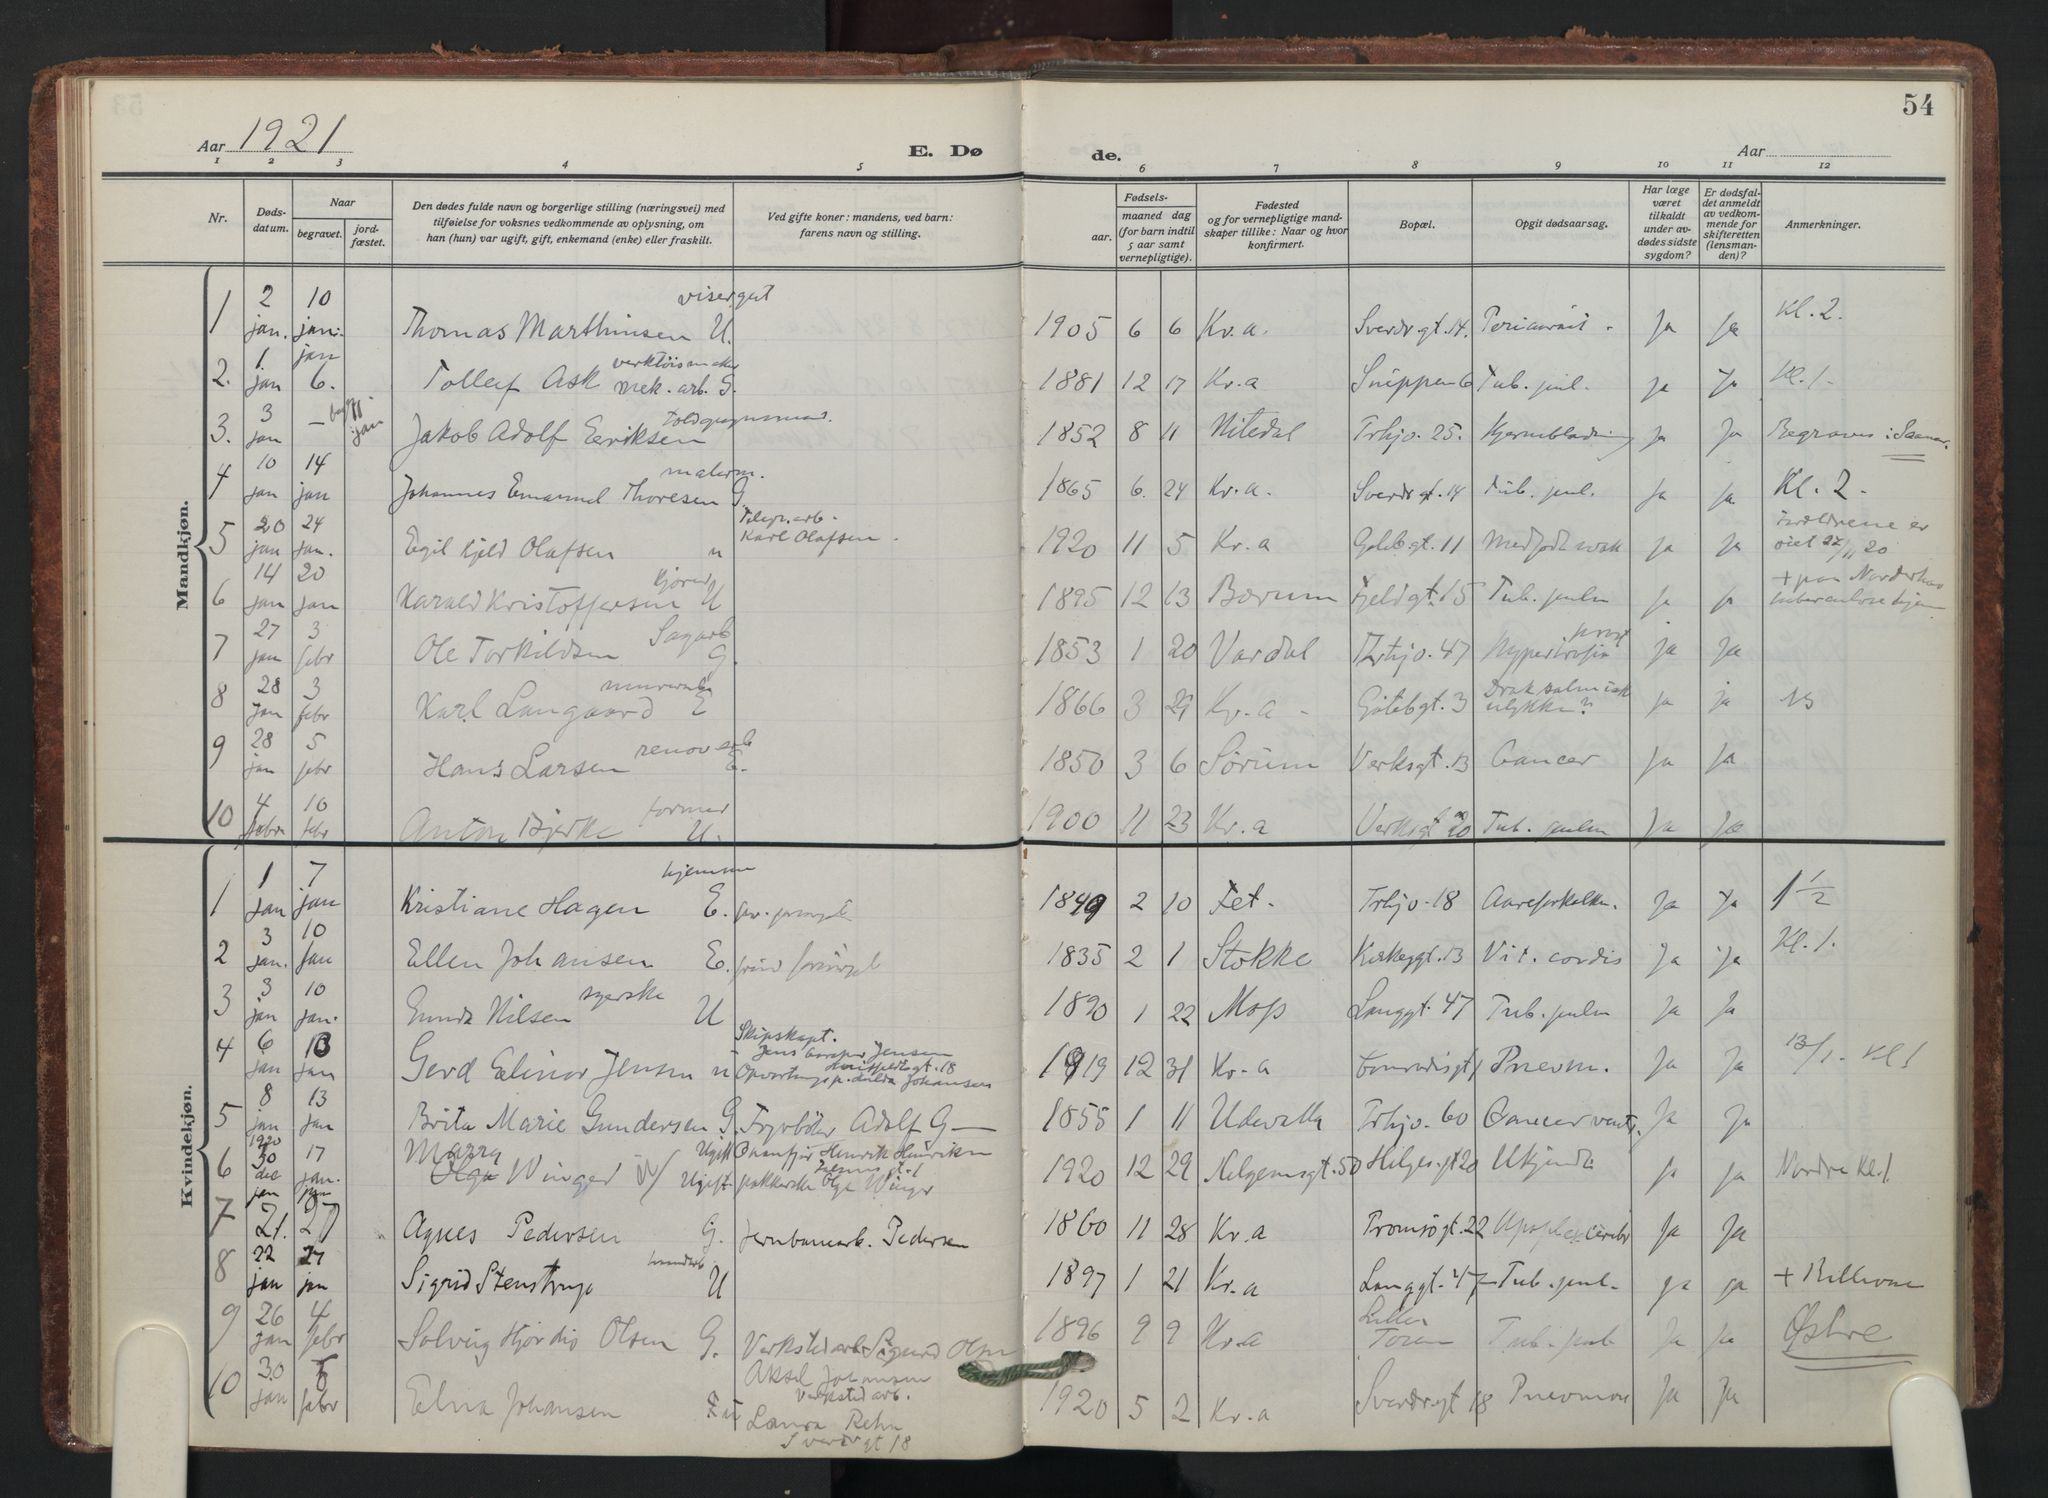 54
Aar 1921
E. Dø
de.
Aar
1 2 3 4 5 6 7 8 9 10 11 12
Nr.
Døds-
datum.
Naar
begravet.
jord-
fæstet.
Den dødes fulde navn og borgerlige stilling (næringsvei) med
tilføielse for voksnes vedkommende av oplysning, om
han (hun) var ugift, gift, enkemand (enke) eller fraskilt.
Ved gifte koner: mandens, ved barn:
farens navn og stilling.
Fødsels-
aar.
maaned dag
(for barn indtil
5 aar samt
vernepligtige).
Fødested
og for vernepligtige mand-
skaper tillike: Naar og hvor
konfirmert.
Bopæl.
Opgit dødsaarsag.
Har læge
været
tilkaldt
under av-
dødes sidste
sygdom?
Er dødsfal-
det anmeldt
av vedkom-
mende for
skifteretten
(lensman-
den)?
Anmerkninger.
Mandkjøn.
1 2 jan. 10 jan. Thomas Marthinsen visergut U. 1905 6 6 Kr.a. Sverdr.gt. 14. Ja Ja Kl. 2.
2. 1. jan 6. jan Tollef Ask verktöismaker mek. arb. G. 1881 12 17 Kr.a 6 Tub. pul. Ja Ja Kl. 1.
3. 3 jan — jan Jakob Adolf Eeriksen 1852 8 11 Nitedal Trhjo. 25. Hjerneblødning Ja Ja Begraves i
4 10 jan 14 jan Johannes Emanuel Thoresen malerm. G. 1865 6. 24 Kr.a. Sverdr. gt. 14 Tub. pul. Ja Ja Kl. 2.
5 20 jan 24 jan. Egil Kjeld Olafsen u Telegr. arb. Karl Olafsen. 1920 11 5 Kr.a Göteb gt. 11 Medfödt svak Ja Ja Foreldrene er viet 27/11 20
6 14 jan 20 jan Harald Kristoffersen U 1895 12 13 Bærum Fjeldgt. 15 Tub. pulm Ja Ja + paa tuberculosehjem
7 27 jan 3 febr Ole Torkildsen Sagarb G. 1853 1 20 Vardal Trhjo. 47 Hypertrofia prost Ja Ja
8 28 jan 3 febr Karl Langaard E 1866 3 29 Kr.a - Götebgt. 3 Drak salmiak ulykke? Ja Ja
9 28 jan 5 febr Hans Larsen renov arb E. 1850 3 6 Sørum Verksgt. 13 Cancer Ja Ja
10 4 febr 10 febr Anton Bjerke former U. 1900 11 23 Kr.a Verksgt 20 Tub. pulm Ja Ja
Kvindekjøn.
1 1 jan 7 jan Kristiane Hagen hjemme E. 1849 2 10 Fet. Trhjo. 18 Aareforkalkn. Ja Ja 1 1/2
2 3 jan. 10 jan Ellen Johansen E. 1835 2 1 Stokke Kirkeggt. 13 Vit. cordis Ja Ja Kl. 1.
3 3 jan 10 jan. Gunda Nilsen syerske U 1890 1 22 Moss Langgt. 47 Tub. pulm Ja Ja
4 6 jan 13 jan Gerd Elinor Jensen u Skipskapt. Jens Jensen Hulda Johansen 1919 12 31 Kr.a Pnevm. Ja Ja 13/1. Kl 1
5 8 jan 13 jan Brita Marie Gundersen G. Fyrböter Adolf G— 1855 1 11 Udevalla Trhjo. 60 Cancer ventr. Ja Ja
6 1920 30 dec 17 jan. Marry Olga Winger Ugift Henrik Henriksen Ugift pakkerske Olga Winger 1920 12 29 Helgesensgt. 50 Helges. gt 20 Ukjendt Ja Ja Nordre Kl. 1
7 jan 21. jan 27 Agnes Pedersen G. Jernbanearb. Pedersen 1860 11 28 Kr.a Tromsögt. 22 Apoplex cerebr Ja Ja
8 22 jan 27 jan Sigrid Stenstrup U 1897 1 21 Kr.a Langgt. 47 Tub. pul. Ja Ja
9 26 jan 4 febr Solvieg Hjördis Olsen G. Verksted arb. Sigurd Olsen 1896 9 9 Kr.a Lille Tub. pul Ja Ja Østre
10 30 jan febr Elna Johansen Aksel Johansen Verksted arb. Laura Rehn Sverdr gt 18 1920 5 2 Kr.a Sverdr.gt 18 Pnevmoni Ja Ja